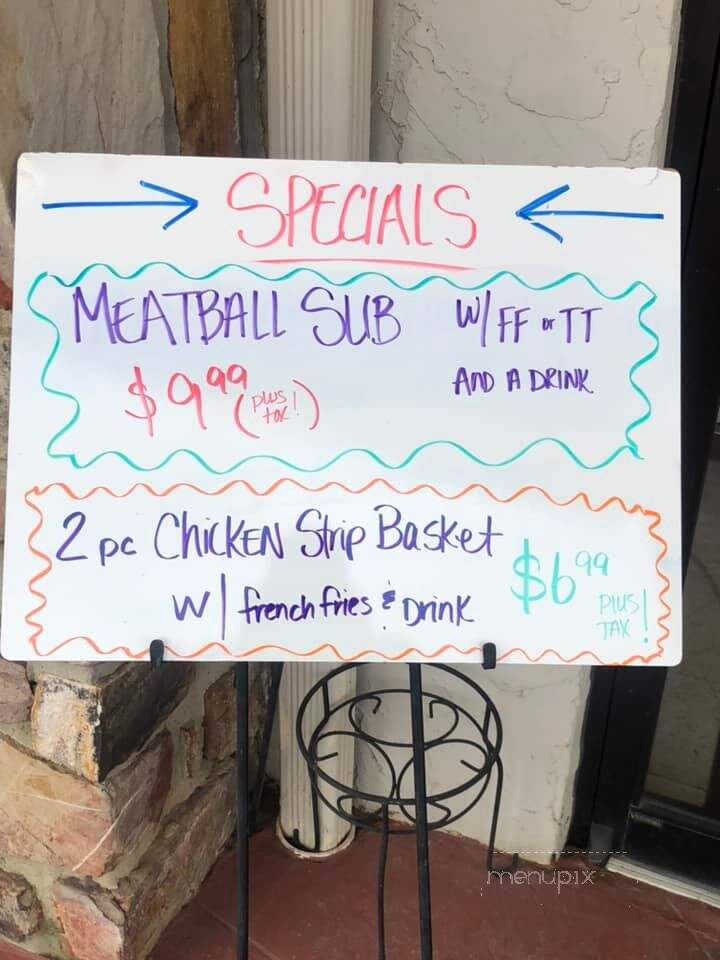 SPECIALS
MEATBALL SUB W/ FF or TT
AND A DRINK
$9.99 (plus tax!)
2 pc Chicken Strip Basket
w/ french fries & Drink
$6.99 PLUS TAX!
menupix